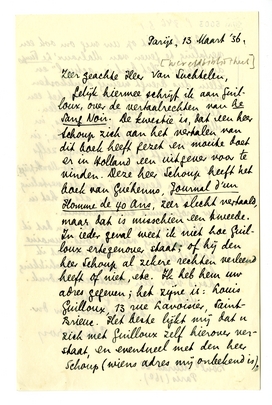 Parijs, 13 Maart '36.
[wereldbibliotheek]
Zeer geachte Heer Van Suchtelen,
Gelijk hiermee schrijf ik aan Guil-
loux, over de vertaalrechten van Le
Sang Noir. De kwestie is, dat een heer
Schoup zich aan het vertalen van
dit boek heeft gezet en moeite doet
er in Holland een uitgever voor te
vinden. Deze heer Schoup heeft het
boek van Guéhenno, Journal d'un
Homme de 40 Ans, zeer slecht vertaald,
maar dat is misschien een tweede.
In ieder geval weet ik niet hoe Guil-
loux ertegenover staat; of hij den
heer Schoup al zekere rechten verleend
heeft of niet, etc. Ik heb hem uw
adres gegeven; het zijne is: Louis
Guilloux, 13 rue Lavoisier, Saint-
Brieuc. Het beste lijkt mij dat u
zich met Guilloux zelf hierover ver-
staat en eventueel met den heer
Schoup (wiens adres mij onbekend is),